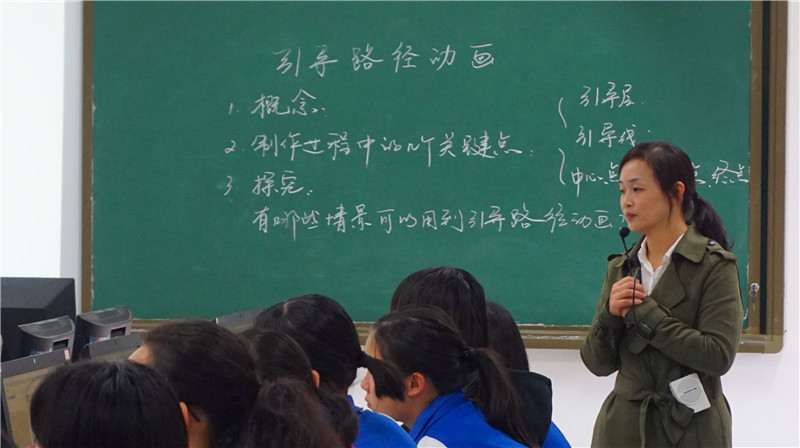 引导路径动画
1. 概念:
2. 制作过程中的几个关键点:
3. 探究:
有哪些情景可以用到引导路径动画
引导层
引导线
中心点 点, 终点